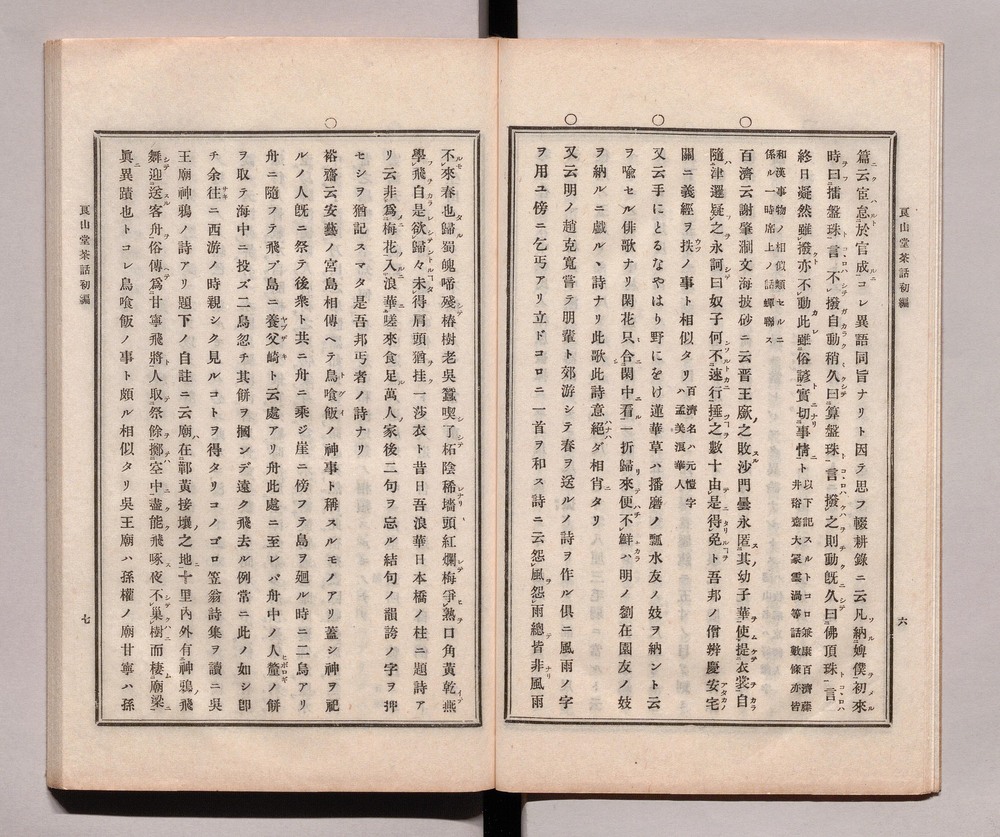 篇云宦怠於官成コレ異語同旨ナリト因テ思フ輟耕錄ニ云凡納婢僕初來
時曰擂盤珠言不撥自動稍久曰算盤珠言撥之則動旣久曰佛頂珠言
終日凝然雖撥亦不動此雖俗諺實切事情ト以下記スルトコロ兼康百濟藤
井裕齋大冢雲渦等話數條亦皆
和漢事物ノ相似類セルニ
係ル一時席上ノ話蟬聯ス
百濟云謝肇淛文海披砂ニ云晋王廞之敗沙門曇永匿其幼子華使提衣裳自
隨津邏疑之永訶曰奴子何不速行捶之數十由是得免ト吾邦ノ僧辨慶安宅
關ニ義經ヲ扶ノ事ト相似タリ百濟名ハ元愷字
ハ孟美浪華人
又云手にとるなやはり野にをけ蓮華草ハ播磨ノ瓢水友ノ妓ヲ納ント云
ヲ喩セル俳歌ナリ閑花只合閑中看一折歸來便不鮮ハ明ノ劉在園友ノ妓
ヲ納ルニ戲ルヽ詩ナリ此歌此詩意絕ダ相肖タリ
又云明ノ趙克寬嘗テ朋輩ト郊游シテ春ヲ送ルノ詩ヲ作ル俱ニ風雨ノ字
ヲ用ユ傍ニ乞丐アリ立ドコロニ一首ヲ和ス詩ニ云怨風怨雨總皆非風雨
艮山堂茶話初編
六
不來春也歸蜀魄啼殘椿樹老吳蠶喫了柘陰稀墻頭紅爛梅爭熟口角黃乾燕
學飛自是欲歸々未得肩頭猶挂一莎衣ト昔日吾浪華日本橋ノ柱ニ題詩ア
リ云非爲梅花入浪華嗟來食足萬人家後二句ヲ忘ル結句ノ韻誇ノ字ヲ押
セシヲ猶記スマタ是吾邦丐者ノ詩ナリ
裕齋云安藝ノ宮島相傳ヘテ鳥喰飯ノ神事ト稱スルモノアリ蓋シ神ヲ祀
ルノ人旣ニ祭テ後衆ト其ニ舟ニ乘ジ崖ニ傍フテ島ヲ廻ル時ニ二鳥アリ
舟ニ隨フテ飛ブ島ニ養父崎ト云處アリ舟此處ニ至レバ舟中ノ人釐ノ餠
ヲ取テ海中ニ投ズ二鳥忽チ其餠ヲ摑ンデ遠ク飛去ル例常ニ此ノ如シ卽
チ余往ニ西游ノ時親シク見ルコトヲ得タリコノゴロ笠翁詩集ヲ讀ニ吳
王廟神鴉ノ詩アリ題下ノ自註ニ云廟在鄿黃接壤之地十里內外有神鴉飛
舞迎送客舟俗傳爲甘寧飛將人取祭餘擲空中盡能飛啄夜不巢樹而棲廟梁
眞異蹟也トコレ鳥喰飯ノ事ト頗ル相似タリ吳王廟ハ孫權ノ廟甘寧ハ孫
艮山堂茶話初編
七